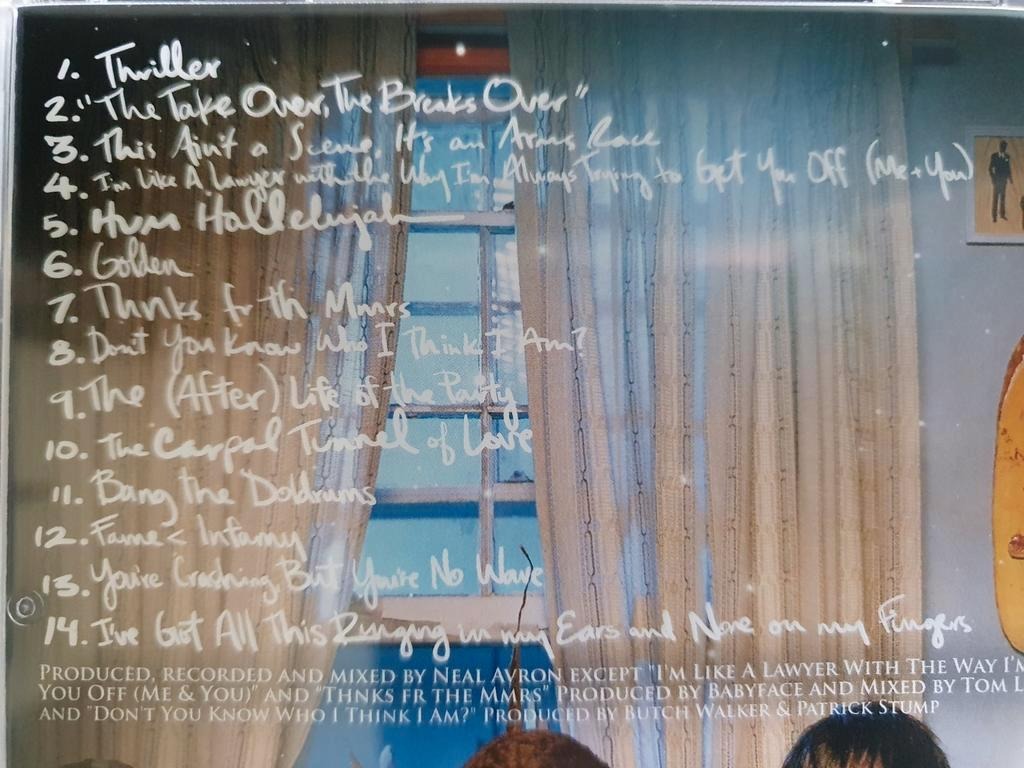 1. Thriller
2. "The Take Over, The Breaks Over"
3. This Ain't a Scene, It's an Arms Race
4. I'm Like A Lawyer with the Way I'm Always Trying to Get You Off (Me + You)
5. Hum Hallelujah
6. Golden
7. Thnks fr th Mmrs
8. Don't You Know Who I Think I Am?
9. The (After) Life of the Party
10. The Carpal Tunnel of Love
11. Bang the Doldrums
12. Fame < Infamy
13. You're Crashing, But You're No Wave
14. I've Got All This Ringing in my Ears and None on my Fingers
PRODUCED, RECORDED AND MIXED BY NEAL AVRON EXCEPT "I'M LIKE A LAWYER WITH THE WAY I'M
YOU OFF (ME & YOU)" AND "THNKS FR THE MMRS" PRODUCED BY BABYFACE AND MIXED BY TOM L
AND "DON'T YOU KNOW WHO I THINK I AM?" PRODUCED BY BUTCH WALKER & PATRICK STUMP